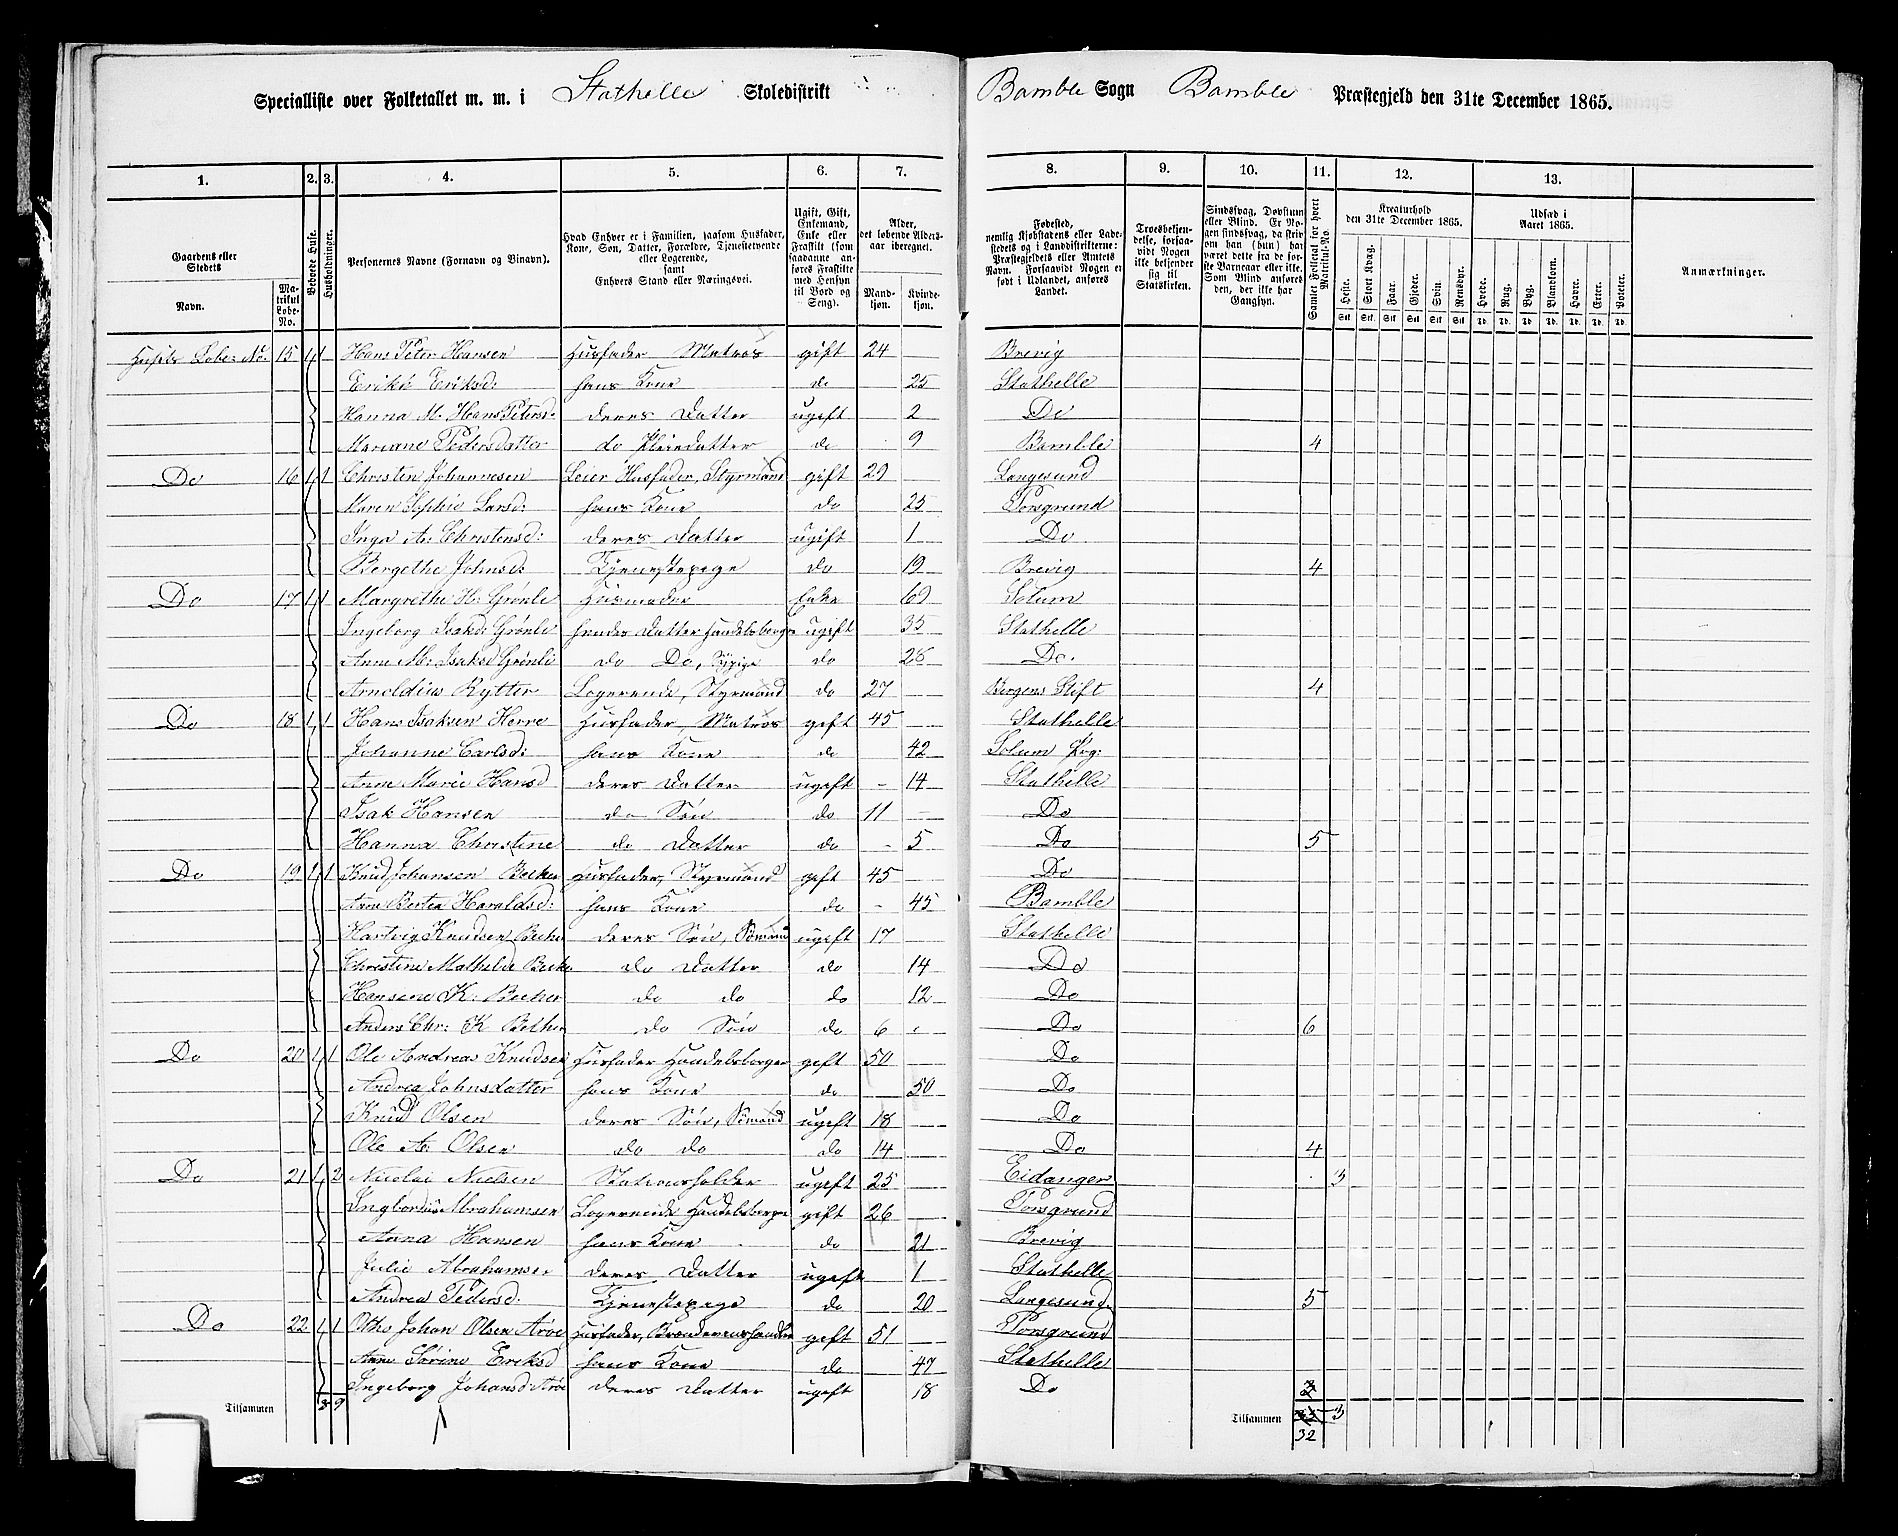 Specialliste over Folketallet m. m. i Stathelle Skoledistrikt Bamble Sogn Bamble Præstegjeld den 31te December 1865.
1. 2. 3. 4. 5. 6. 7. 8. 9. 10. 11. 12. 13.
Gaardens eller Stedets
Navn.
Matrikul Løbe-No.
Beboede Huse.
Husholdninger.
Personernes Navne (Fornavn og Binavn).
Hvad Enhver er i Familien, saasom Husfader, Kone, Søn, Datter, Forældre, Tjenestetyende eller Logerende, samt Enhvers Stand eller Næringsvei.
Ugift, Gift, Enkemand, Enke eller Fraskilt (som saadanne anføres Fraskilte med Hensyn til Bord og Seng).
Alder, det løbende Aldersaar iberegnet.
Mandkjøn. Kvindekjøn.
Fødested, nemlig Kjøbstadens eller Ladestedets og i Landdistrikterne: Præstegjeldets eller Amtets Navn. Forsaavidt Nogen er født i Udlandet, anføres Landet.
Troesbekjendelse, forsaavidt Nogen ikke bekjender sig til Statskirken.
Sindssvag, Døvstum eller Blind. Er Nogen sindssvag, da skriv om han (hun) har været dette fra de første Barneaar eller ikke. Som Blind anføres den, der ikke har Gangsyn.
Samlet Folketal for hvert Matrikul-No.
Kreaturhold den 31te December 1865.
Heste. Stort Kvæg. Faar. Gjeder. Svin. Rensdyr.
Udsæd i Aaret 1865.
Hvede. Rug. Byg. Blandkorn. Havre. Erter. Poteter.
Anmærkninger.
Husets Løbe-No. 15 1 1 Hans Peter Hansen Husfader Matros gift 24 Brevig
Erikè Eriksd: hans Kone do 25 Stathelle
Hanna M. Hans Petersd: deres Datter ugift 2 Do
Mariane Pedersdatter do Pleiedatter do 9 Bamble 4
Do 16 1 1 Christen Johannesen Leier Husfader, Styrmand gift 29 Langesund
Maren Sophie Larsd: hans Kone do 25 Porsgrund
Inga A. Christensd: deres Datter ugift 1 Do
Bergethe Johnsd: Tjenestepige do 19 Brevig 4
Do 17 1 1 Margrethe H. Grönli Husmoder Enke 69 Solum
Ingeborg Isaksd: Grönli hendes Datter Handelsborger ugift 35 Stathelle
Anne M: Isaksd Grönli do Do, Sypige do 28 Do.
Arnoldius Rytter Logerende, Styrmand do 27 Bergens Stift 4
Do 18 1 1 Hans Isaksen Herre Husfader, Matros gift 45 Stathelle
Johanne Carlsd: hans Kone do 42 Solum Pog:
Anne Marie Hansd deres Datter ugift 14 Stathelle
Isak Hansen do Sön do 11 Do
Hanna Christine do Datter do 5 Do 5
Do 19 1 1 Knud Johansen Becker Husfader, Styrmand gift 45 Do
Anne Bertea Haraldsd: hans Kone do 45 Bamble
Hartvig Knudsen Becker deres Sön, Sömand ugift 17 Stathelle
Christine Mathilde Becker do Datter do 14 Do
Hansine K: Becker do do do 12 Do
Anders Chr: K Becker do Sön do 6 Do 6
Do 20 1 1 Ole Andreas Knudsen Husfader Handelsborger gift 50 Do
Andrea Johnsdatter hans Kone do 50 Do
Knud Olsen deres Sön, Sömand ugift 18 Do
Ole A. Olsen do do do 14 Do 4
Do 21 1 2 Nicolai Nielsen Stationsholder ugift 25 Eidanger 3
Abrahamsen Logerende Handelsborger gift 26 Porsgrund
Anna Hansen hans Kone do 21 Brevig
Julie Abrahamsen deres Datter ugift 1 Stathelle
Andrea Pedersd: Tjenestepige do 20 Langesund 5
Do 22 1 1 Otto Johan Olsen Aröe Husfader, gift 51 Porsgrund
Anne Sörine Eriksd hans Kone do 47 Stathelle
Ingeborg Johansd: Aröe deres Datter ugift 18 Do 3
Tilsammen 8 9 Tilsammen 35 3
32